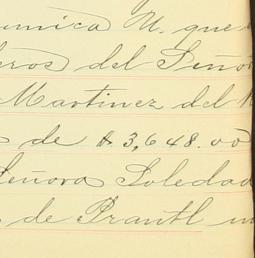 M. que
del Señor
Martinez del
de $ 3,648.00
Señora Soledad
de Prantl